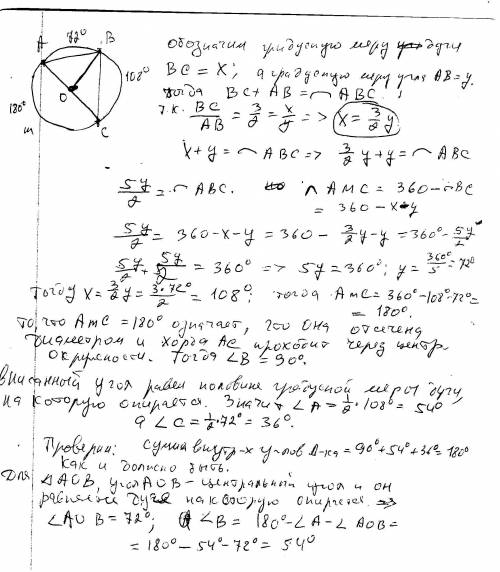 72°
A
B
O
108°
C
180°
m
обозначим градусную меру дуги
BC = X; а градусную меру угла AB = y.
тогда BC + AB = ⌒ ABC.
т.к. BC/AB = 3/2 = x/y => X = 3/2 y
X + y = ⌒ ABC => 3/2 y + y = ⌒ ABC
5y/2 = ⌒ ABC. но ⌒ AMC = 360 - ⌒BC
= 360 - x - y
5y/2 = 360 - x - y = 360 - 3/2 y - y = 360° - 5y/2
5y/2 + 5y/2 = 360° => 5y = 360°; y = 360°/5 = 72°
тогда X = 3/2 y = 3·72°/2 = 108°; тогда AmC = 360° - 108° - 72° =
= 180°.
то, что AmC = 180° означает, что она отсечена
диаметром и хорда AC проходит через центр
окружности. Тогда ∠B = 90°.
вписанный угол равен половине градусной меры дуги,
на которую опирается. Значит ∠A = 1/2 · 108° = 54°
а ∠C = 1/2 · 72° = 36°.
Проверим: сумма внутр-х углов Δ-ка = 90° + 54° + 36° = 180°
как и должно быть.
Для ΔAOB, угол AOB - центральный угол и он
равен дуге на которую опирается =>
∠AOB = 72°; ∠B = 180° - ∠A - ∠AOB =
= 180° - 54° - 72° = 54°